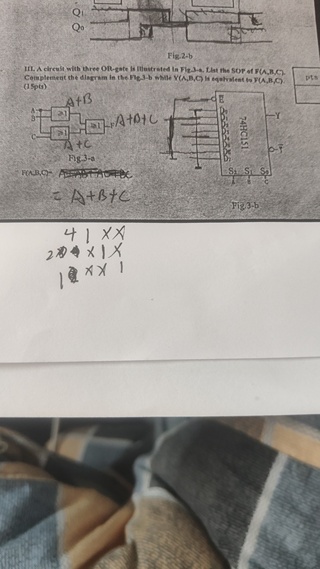 Q₁
Q₀
Fig.2-b
III. A circuit with three OR-gate is illustrated in Fig.3-a. List the SOP of F(A,B,C).
Complement the diagram in the Fig.3-b while Y(A,B,C) is equivalent to F(A,B,C)
(15pts)
pts
A+B
A
B
≥1
≥1
A+B+C
C
≥1
A+C
Fig.3-a
F(A,B,C)=
= A+B+C
E
74HC151
Y
Y̅
S₂ S₁ S₀
Fig.3-b
4 1 X X
2 X 1 X
1 X X 1